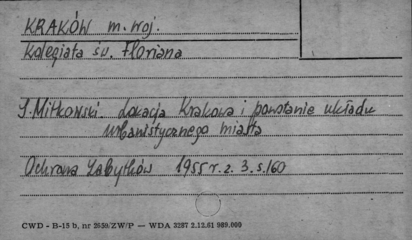 KRAKÓW m. woj.
Kolegiata św. Floriana
J. Mitkowski. Lokacja Krakowa i powstanie układu
urbanistycznego miasta
Ochrona Zabytków 1955 r. z. 3. s. 160
CWD - B-15 b, nr 2650/ZW/P — WDA 3287 2.12.61 989.000